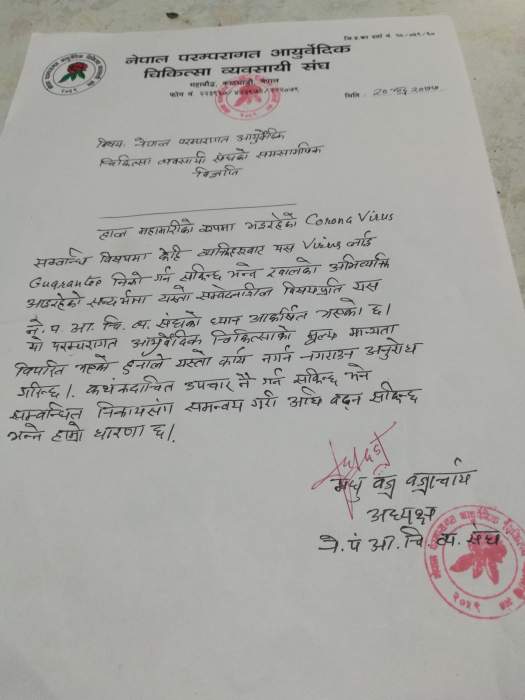 नेपाल परम्परागत आयुर्वेदिक
चिकित्सा व्यवसायी संघ
महाबौद्ध, काठमाडौं, नेपाल
फोन नं.
मिति :
विषय: नेपाल परम्परागत आयुर्वेदिक
चिकित्सा व्यवसायी संघको समसामयिक
विज्ञप्ति
हाल महामारीको रूपमा भइरहेको Corona Virus
सम्बन्धि विषयमा केहि व्यक्तिहरुबाट यस Virus लाई
Guarantee निको गर्न सकिन्छ भन्ने खालको अभिव्यक्ति
आइरहेको सन्दर्भमा यस्तो सम्वेदनशील विषयप्रति यस
ने. प. आ. चि. व्य. संघको ध्यान आकर्षित भएको छ।
यो परम्परागत आयुर्वेदिक चिकित्साको मूल्य मान्यता
विपरित भएको हुनाले यस्तो कार्य नगर्न नगराउन अनुरोध
गरिन्छ। कथंकदाचित उपचार नै गर्न सकिन्छ भने
सम्बन्धित निकायसंग समन्वय गरी अघि बढ्न सकिन्छ
भन्ने हाम्रो धारणा छ।
मधु वज्र वज्राचार्य
अध्यक्ष
ने. पं आ. चि. व्य. संघ
२०४९